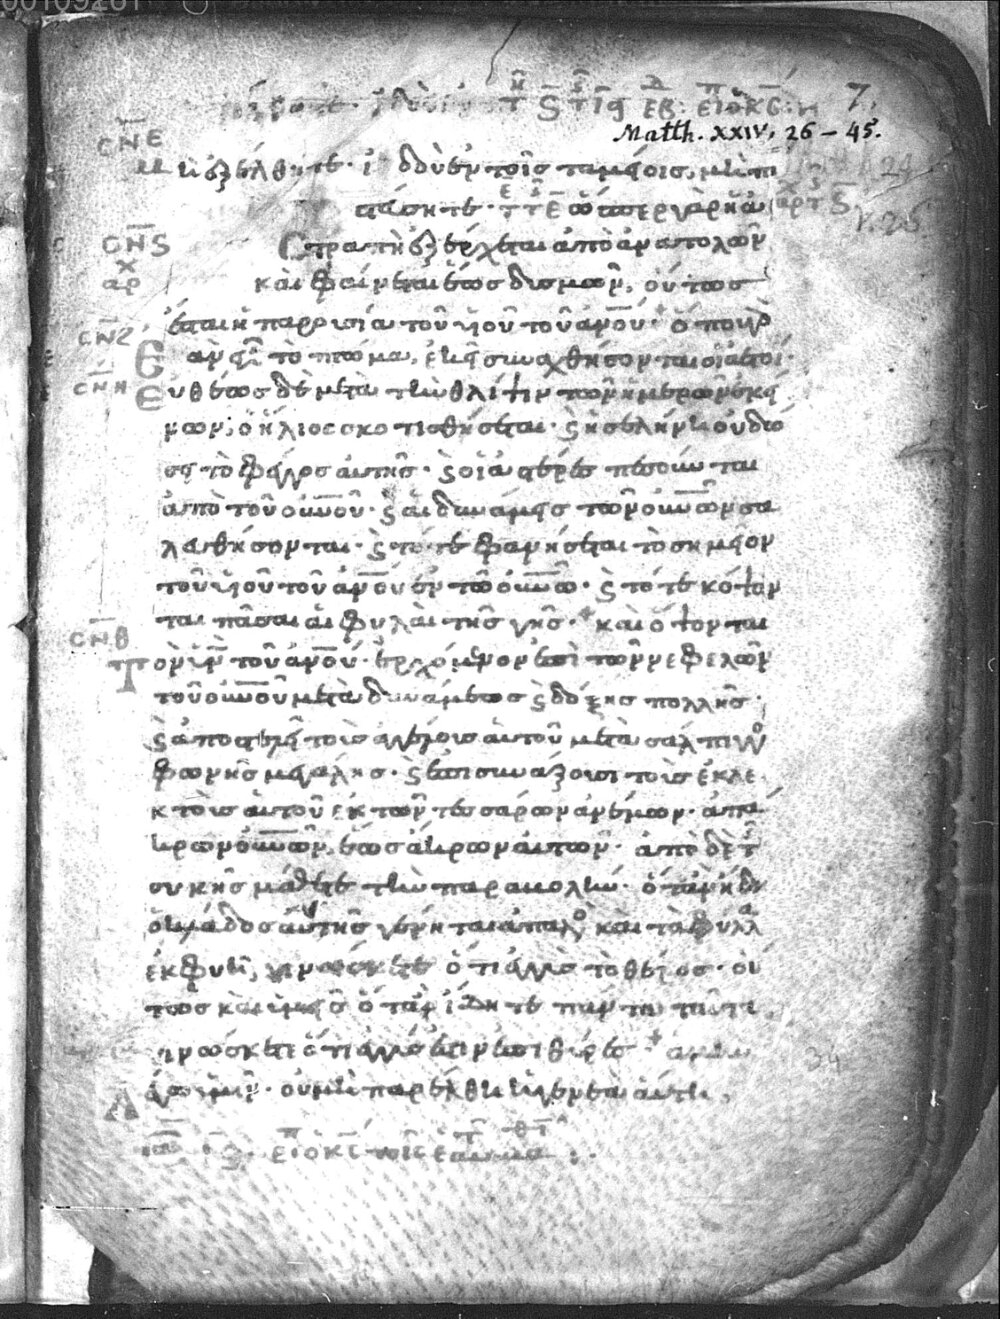 7.
Matth. XXIV, 26 – 45.
σν̅ε
μὴ ἐξέλθητε· ἰδοὺ ἐν τοῖς ταμείοις, μὴ πι
στεύσητε· ὥσπερ γὰρ ἡ ἀ
σν̅ϛ
στραπὴ ἐξέρχεται ἀπὸ ἀνατολῶν
αρχ
καὶ φαίνεται ἕως δυσμῶν, οὕτως
ἔσται ἡ παρουσία τοῦ υἱοῦ τοῦ ἀν̅ου· ὅπου
σν̅ζ
ἐὰν ᾖ τὸ πτῶμα, ἐκεῖ συναχθήσονται οἱ ἀετοί·
σν̅η
Εὐθέως δὲ μετὰ τὴν θλίψιν τῶν ἡμερῶν ἐκεί
νων, ὁ ἥλιος σκοτισθήσεται· ϛ ἡ σελήνη οὐ δώ
σει τὸ φέγγος αὐτῆς· ϛ οἱ ἀστέρες πεσοῦνται
ἀπὸ τοῦ οὐν̅οῦ· ϛ αἱ δυνάμεις τῶν οὐν̅ῶν σα
λευθήσονται· ϛ τότε φανήσεται τὸ σημεῖον
τοῦ υἱοῦ τοῦ ἀν̅ου ἐν τῶ οὐν̅ῶ· ϛ τότε κόψον
ται πᾶσαι αἱ φυλαὶ τῆς γῆς· καὶ ὄψονται
σν̅θ
τὸν υἱὸν τοῦ ἀν̅ου· ἐρχόμενον ἐπὶ τῶν νεφελῶν
τοῦ οὐν̅οῦ μετὰ δυνάμεως ϛ δόξης πολλῆς·
ϛ ἀποστελεῖ τοὺς ἀγγέλους αὐτοῦ μετὰ σάλπιγγο
φωνῆς μεγάλης· ϛ ἐπισυνάξουσι τοὺς ἐκλε
κτοὺς αὐτοῦ ἐκ τῶν τεσσάρων ἀνέμων· ἀπ
ἄκρων οὐν̅ῶν, ἕως ἄκρων αὐτῶν· ἀπὸ δὲ τ
συκῆς μάθετε τὴν παραβολήν· ὅταν ἤδη
ὁ κλάδος αὐτῆς γένηται ἁπαλὸ καὶ τὰ φύλλ
ἐκφύει, γινώσκετε ὅτι ἐγγὺς τὸ θέρος· οὕ
τως καὶ ὑμεῖς ὅταν ἴδητε πάντα ταῦτα,
γινώσκετε ὅτι ἐγγύς ἐστιν ἐπὶ θύραις· ἀμὴν
λέγω ὑμῖν· οὐ μὴ παρέλθη ἡ γενεὰ αὕτη,
34